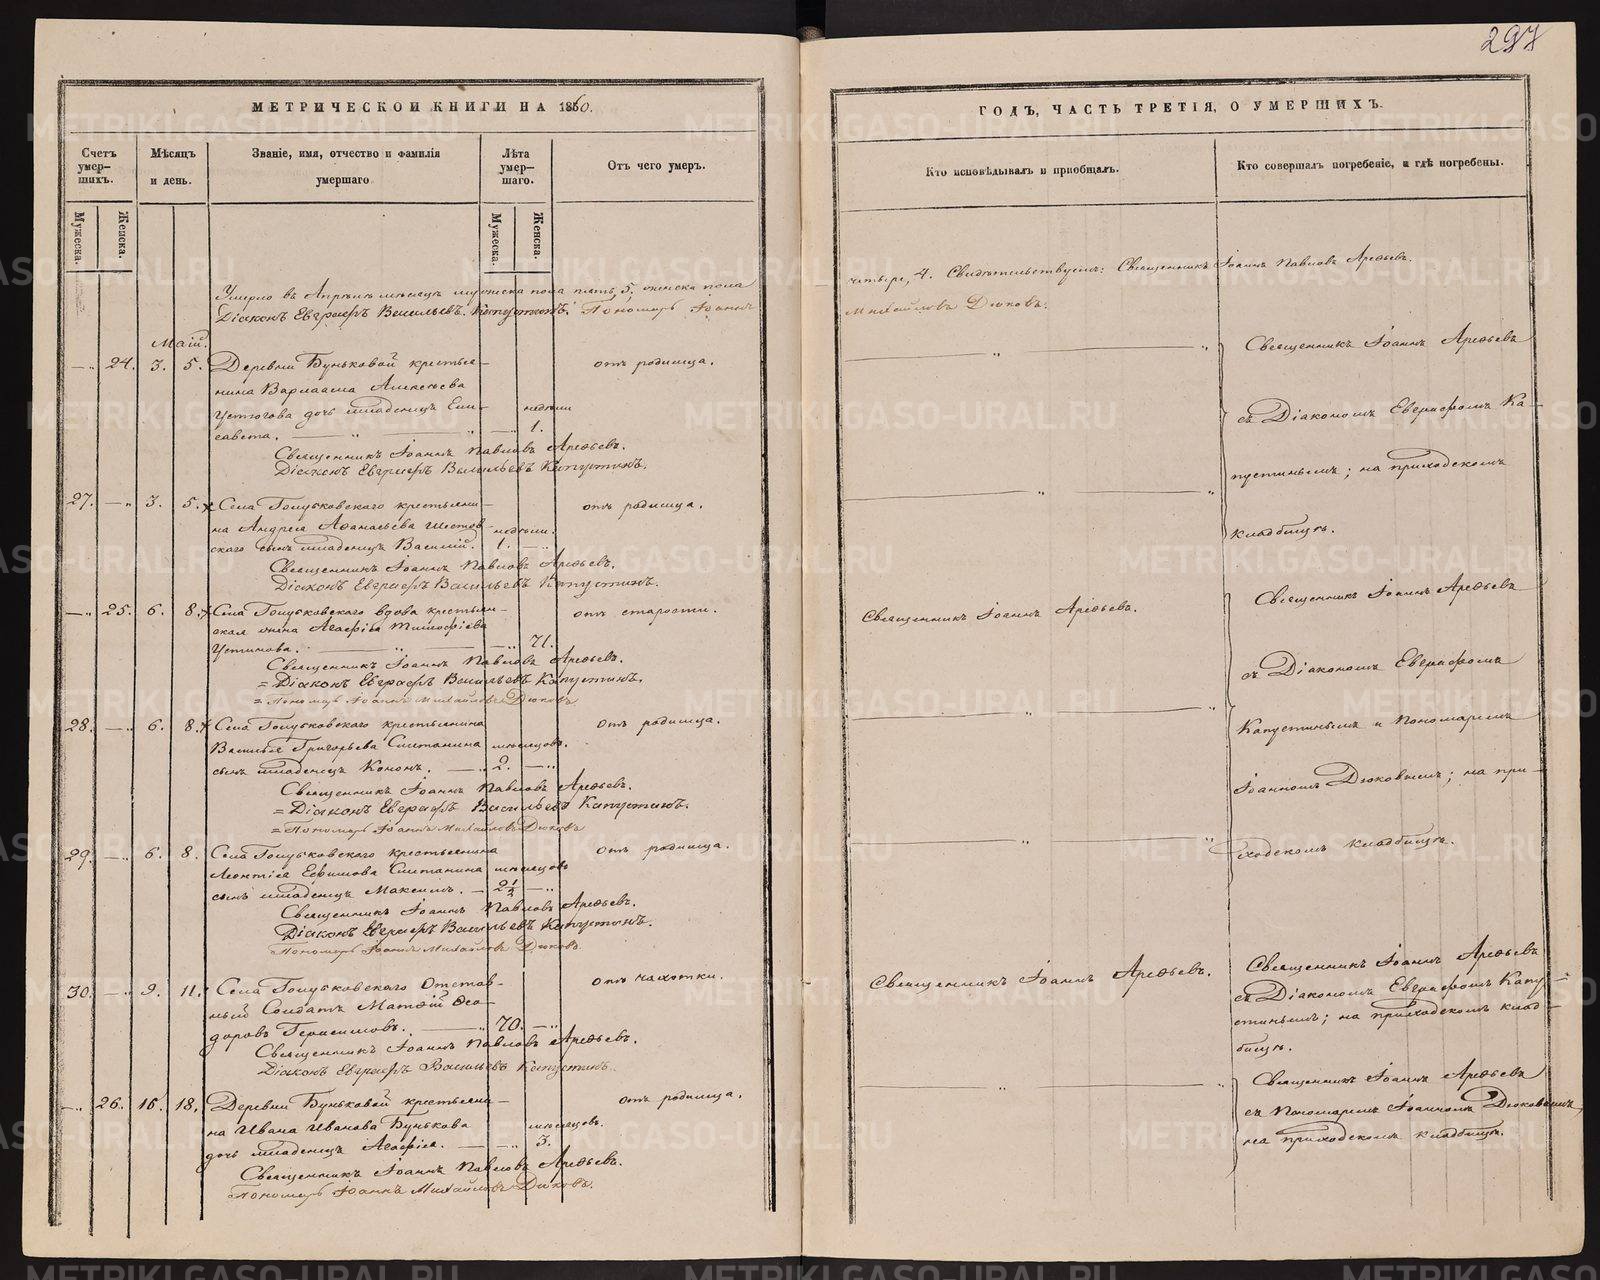 297
МЕТРИЧЕСКОЙ КНИГИ НА 1860.
Счетъ умер-шихъ.
Мѣсяцъ и день.
Званіе, имя, отчество и фамилія умершаго
Лѣта умер-шаго.
Отъ чего умеръ.
Мужеска.
Женска.
Мужеска.
Женска.
Умерло въ Апрѣлѣ мѣсяцѣ мужеска пола пять, 5, женска пола
Діаконъ Евграфъ Васильевъ Капустинъ. Пономарь Іоаннъ
Маій.
—„ 24. 3. 5. Деревни Буньковой крестья- отъ родимца.
нина Варлаама Алексѣева
Устюгова дочь младенецъ Ели- недѣли
савета. — „ — „ —„ 1.
Священникъ Іоаннъ Павловъ Арефьевъ.
Діаконъ Евграфъ Васильевъ Капустинъ.
27. —„ 3. 5. Села Голубковскаго крестьяни- отъ родимца.
на Андрея Афанасьева Шестов- недѣли.
скаго сынъ младенецъ Василій. 1. —„
Священникъ Іоаннъ Павловъ Арефьевъ.
Діаконъ Евграфъ Васильевъ Капустинъ.
—„ 25. 6. 8. Села Голубковскаго вдова крестьян- отъ старости.
ская жена Агафія Тимофѣева
Устинова. — „ — —„ 71.
Священникъ Іоаннъ Павловъ Арефьевъ.
=Діаконъ Евграфъ Васильевъ Капустинъ.
=Пономарь Іоаннъ Михайловъ Дюковъ
28. —„ 6. 8. Села Голубковскаго крестьянина отъ родимца.
Василья Григорьева Сметанина мѣсяцовъ.
сынъ младенецъ Кононъ. —„ 2. —„
Священникъ Іоаннъ Павловъ Арефьевъ.
=Діаконъ Евграфъ Васильевъ Капустинъ.
=Пономарь Іоаннъ Михайловъ Дюковъ
29. —„ 6. 8. Села Голубковскаго крестьянина отъ родимца.
Леонтія Ефимова Сметанина мѣсяцовъ
сынъ младенецъ Максимъ. — 2½ —„
Священникъ Іоаннъ Павловъ Арефьевъ.
Діаконъ Евграфъ Васильевъ Капустинъ.
Пономарь Іоаннъ Михайловъ Дюковъ.
30. —„ 9. 11. Села Голубковскаго Отстав- отъ чахотки.
ный Солдатъ Матфій Ѳео-
доровъ Герасимовъ. —„ 70. —„
Священникъ Іоаннъ Павловъ Арефьевъ.
Діаконъ Евграфъ Васильевъ Капустинъ.
—„ 26. 16. 18. Деревни Буньковой крестьяни- отъ родимца.
на Ивана Иванова Бунькова мѣсяцовъ.
дочь младенецъ Агафія. — —„ 3.
Священникъ Іоаннъ Павловъ Арефьевъ.
Пономарь Іоаннъ Михайловъ Дюковъ.
ГОДЪ, ЧАСТЬ ТРЕТІЯ, О УМЕРШИХЪ.
Кто исповѣдывалъ и пріобщалъ.
Кто совершалъ погребеніе, и гдѣ погребены.
четыре, 4. Свидѣтельствуемъ: Священникъ Іоаннъ Павловъ Арефьевъ.
Михайловъ Дюковъ.
Священникъ Іоаннъ Арефьевъ
съ Діакономъ Евграфомъ Ка-
пустинымъ; на приходскомъ
кладбищѣ.
Священникъ Іоаннъ Арефьевъ.
Священникъ Іоаннъ Арефьевъ
съ Діакономъ Евграфомъ
Капустинымъ и Пономаремъ
Іоанномъ Дюковымъ; на при-
ходскомъ кладбищѣ.
Священникъ Іоаннъ Арефьевъ.
Священникъ Іоаннъ Арефьевъ
съ Діакономъ Евграфомъ Капу-
стинымъ; на приходскомъ клад-
бищѣ.
Священникъ Іоаннъ Арефьевъ
съ Пономаремъ Іоанномъ Дюковымъ,
на приходскомъ кладбищѣ.
METRIKI.GASO-URAL.RU